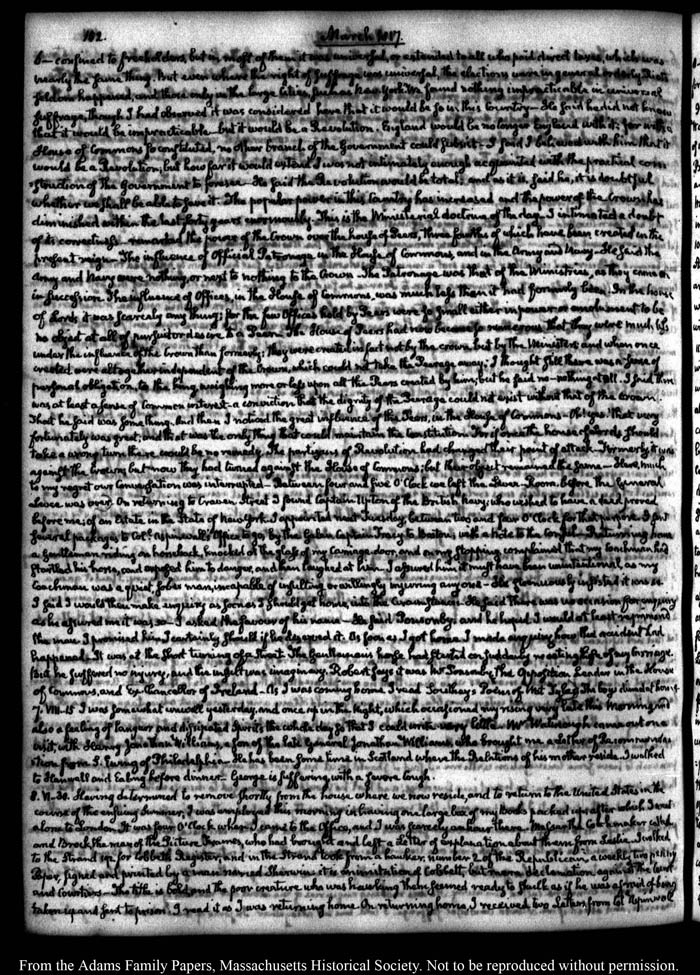 102. March 1817.
6 — confined to freeholders, but in most of them it was universal, or extended to all who paid direct taxes, which was
nearly the same thing. But even where the right of suffrage was universal, the elections were in general orderly. Riots
seldom happened, and those only in the large cities, such as New York. We found nothing impracticable in universal
suffrage, though I had observed it was considered here that it would be so in this Country — He said he did not know
that it would be impracticable — but it would be a Revolution. England would be no longer England with it; for with a
House of Commons so constituted, no other branch of the Government could subsist — I said I believed with him that it
would be a Revolution; but how far it would extend I was not intimately enough acquainted with the practical con-
struction of the Government to foresee — He said the Revolution would be total: and as it is, said he, it is doubtful
whether we shall be able to save it. The popular power in this Country has increased and the power of the Crown has
diminished within the last forty years enormously. This is the Ministerial doctrine of the day. I intimated a doubt
of its correctness — remarked the power of the Crown over the house of Peers, three fourths of which have been created in the
present reign — The influence of Official Patronage in the House of Commons, and in the Army and Navy — He said the
Army and Navy were nothing, or next to nothing to the Crown — The Patronage was that of the Ministers, as they came on
in succession. The influence of Offices, in the House of Commons, was much less than it had formerly been. In the house
of Lords it was scarcely any thing; for the few Offices held by Peers were so small either in power or emolument to be
no object at all of pursuit or desire to a Peer. The House of Peers had now become so numerous that they were much less
under the influence of the Crown than formerly; they were created in fact not by the crown but by the Minister, and when once
created were altogether independent of the Crown, which could not take the Peerage away. I thought still there was a sense of
personal obligation, to the king, weighing more or less upon all the Peers created by him; but he said no — nothing at all. I said there
was at least a sense of Common interest — a conviction that the dignity of the Peerage could not exist without that of the Crown.
That he said was something. And then I noticed the great influence of the Peers, in the House of Commons — Oh! yes. That very
fortunately was great; and that was the only thing that could maintain the Constitution. For if once the house of Lords should
take a wrong turn there would be no remedy. The partizans of Revolution had changed their point of attack. Formerly it was
against the Crown, but now they had turned against the House of Commons; but their object remained the same — Here, much
to my regret our Conversation was interrupted — Between four and five O'Clock we left the Levee-Room, before the general
Levee was over. On returning to Craven Street I found Captain Upton of the British Navy, who wished to have a deed proved
before me; of an Estate in the State of New York. I appointed next Tuesday, between two and four O'Clock for that purpose. I sent
several packages to Coll. Aspinwall's Office to go by the Galen Captain Tracy to Boston; with a Note to the Consul — Returning home
a Gentleman riding on horseback, knocked at the glass of my Carriage door, and on my stopping complained that my Coachman had
startled his horse, and exposed him to danger, and then laughed at him. I assured him it must have been unintentional, as my
Coachman was a quiet, sober man, incapable of insulting or willingly injuring any one — He strenuously insisted it was so.
I said I would then make enquiry as soon as I should get home, into the circumstances. He said there was no occasion for enquiry
as he assured me it was so — I asked the favour of his name — He said Ponsonby; and he hoped I would at least reprimand
the man. I promised him I certainly should if he deserved it. As soon as I got home I made enquiry how the accident had
happened. It was at the short turning of a Street. The Gentleman's horse had started on suddenly meeting the side of my Carriage.
But he suffered no injury, and the insult was imaginary. Robert says it was Mr Ponsonby the Opposition Leader in the House
of Commons, and Ex-Chancellor of Ireland — As I was coming home I read Southey's Poem of Wat Tyler. The boys dined at home.
7. VIII-15 I was somewhat unwell yesterday, and once up in the Night, which occasioned my rising very late this Morning and
also a feeling of languor and dissipated Spirits the whole day so that I could write very little. Mr came out on a
visit, with Henry Jonathan Williams, a son of the late General Jonathan Williams, who brought me a letter of Recommenda-
tion from S. Ewing of Philadelphia. He has been some time in Scotland where the Relations of his mother reside. I walked
to Hanwell and Ealing before dinner — George is suffering, with a severe cough.
8. VI-30. Having determined to remove shortly from the house where we now reside, and to return to the United States in the
course of the ensuing Summer, I was employed this morning in having one large box of my books packed up; after which I went
alone to London. It was four O'Clock when I came to the Office, and I was scarcely an hour there. called
and Brock the man of the Picture Frames, who had brought and left a Letter of Explanation about them from Leslie. I walked
to the Strand for Cobbett's Register, and in the Strand took from a hawker, number 2 of the Republican, a weekly two penny
Paper, signed and printed by a man named Sherwin. it is an imitation of Cobbett, but more declamation against the Court
and Courtiers — The title is bold and the poor creature who was hawking them seemed ready to sculk as if he was afraid of being
taken up and sent to prison. I read it as I was returning home. On returning home, I received two Letters from Coll. Aspinwall
From the Adams Family Papers, Massachusetts Historical Society. Not to be reproduced without permission.